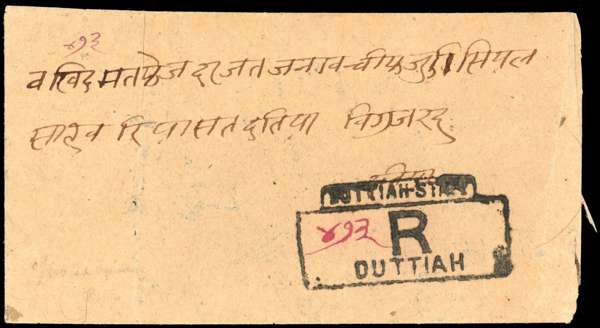 ४१३
बखिदमत फेज दरजत जनाब चीफ जुडीसियल
साहब रियासत दतिया बिगुजरद
DUTTIAH-STATE
४१३ R
DUTTIAH